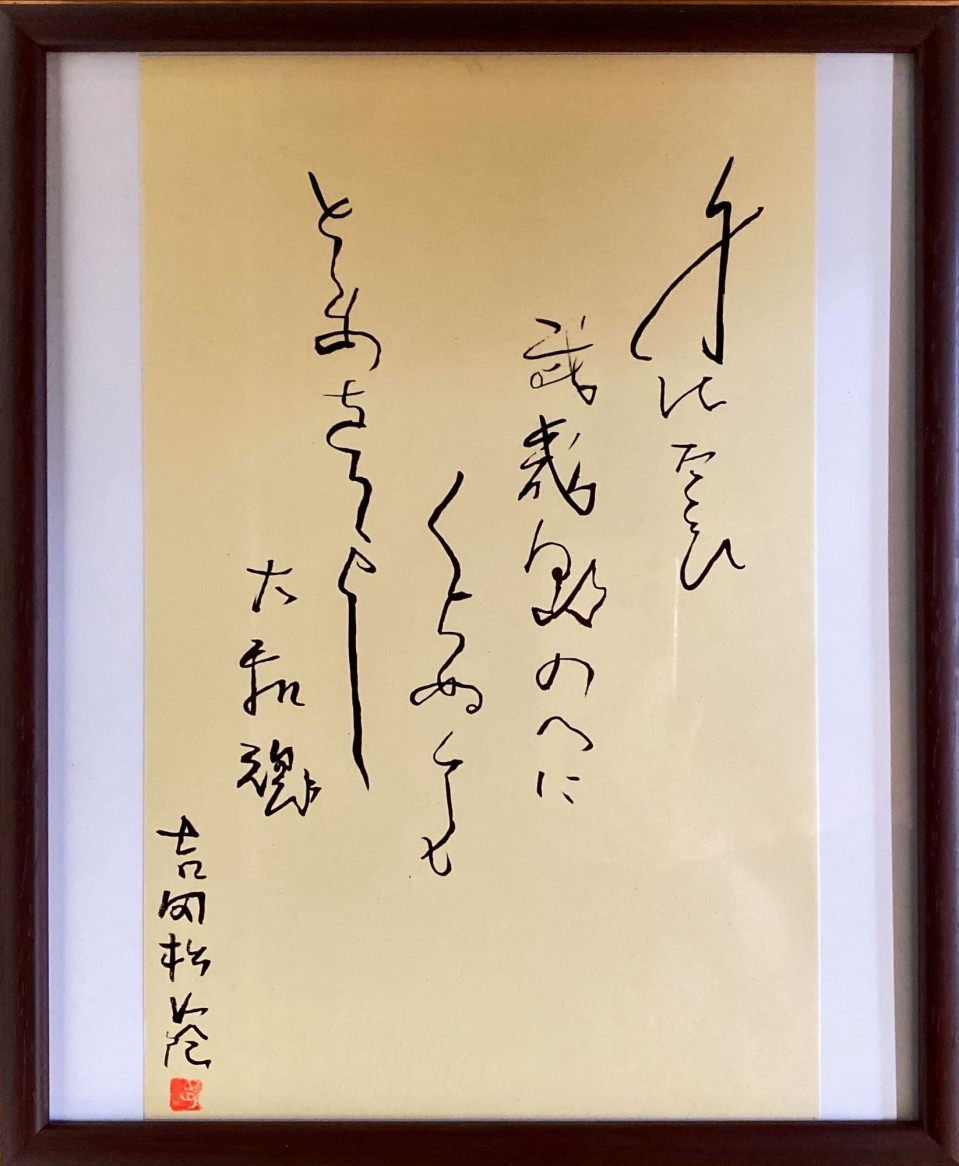 身はたとひ
武蔵野のへに
くちぬとも
とゝめおかまし
大和魂
吉田松蔭